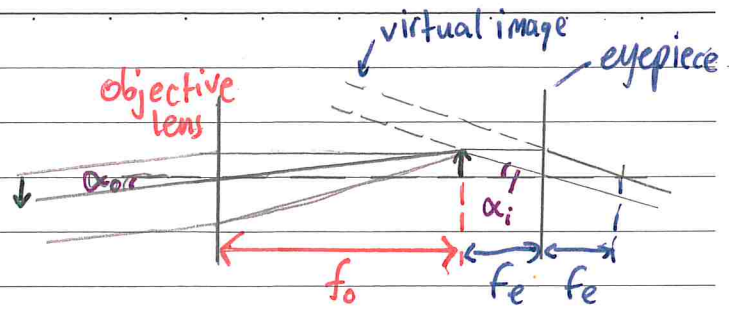 virtual image
eyepiece
objective
lens
αob
αi
fo
fe
fe